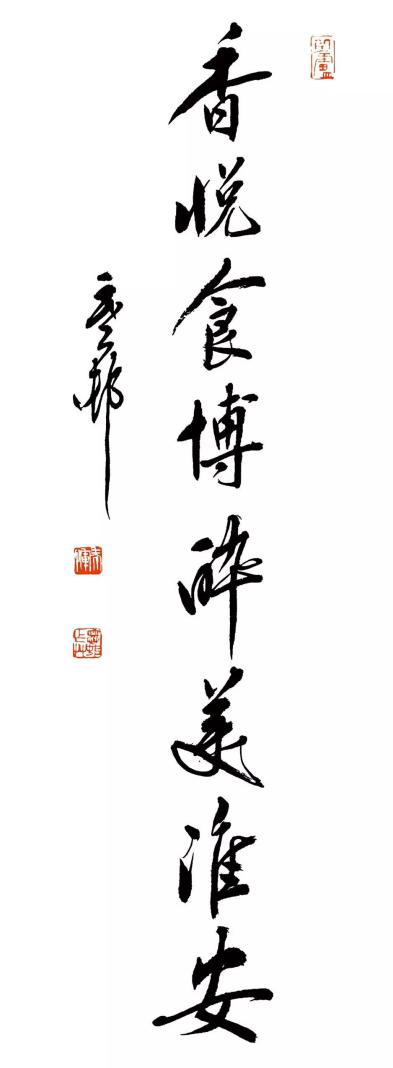 香悦食博醉美淮安